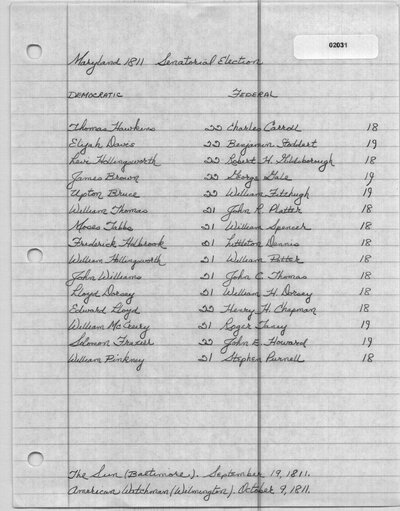 02031
Maryland 1811 Senatorial Election
DEMOCRATIC FEDERAL
Thomas Hawkins 22 Charles Carroll 18
Elijah Davis 22 Benjamin Stoddert 19
Levi Hollingsworth 22 Robert H. Goldsborough 18
James Brown 22 George Gale 19
Upton Bruce 22 William Fitzhugh 19
William Thomas 21 John R. Platter 18
Moses Tabbs 21 William Spencer 18
Frederick Holbrook 21 Littleton Dennis 18
William Hollingsworth 21 William Potter 18
John Williams 21 John C. Thomas 18
Lloyd Dorsey 21 William H. Dorsey 18
Edward Lloyd 22 Henry H. Chapman 18
William McCreery 21 Roger Taney 19
Solomon Frazier 22 John E. Howard 19
William Pinkney 21 Stephen Purnell 18
The Sun (Baltimore). September 19, 1811.
American Watchman (Wilmington). October 9, 1811.